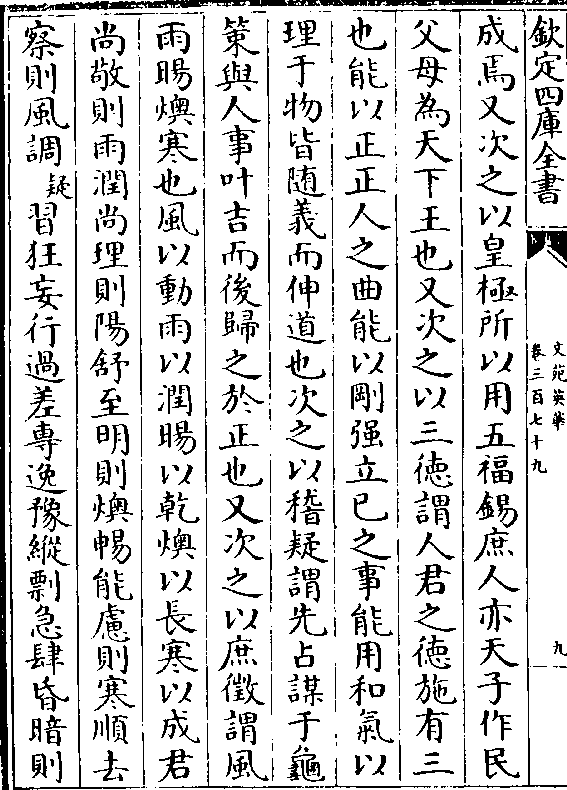 欽定四庫全書
文苑英華
卷三百七十九
九
成焉又次之以皇極所以用五福錫庶人亦天子作民
父母為天下王也又次之以三徳謂人君之徳施有三
也能以正正人之曲能以剛强立已之事能用和氣以
理于物皆随義而伸道也次之以稽疑謂先占謀于龜
䇿與人事叶吉而後歸之於正也又次之以庶徵謂風
雨暘燠寒也風以動雨以潤暘以乾燠以長寒以成君
尚敬則雨潤尚理則陽舒至明則燠暢能慮則寒順去
察則風調疑習狂妄行過差專逸豫縱剽急肆昏暗則